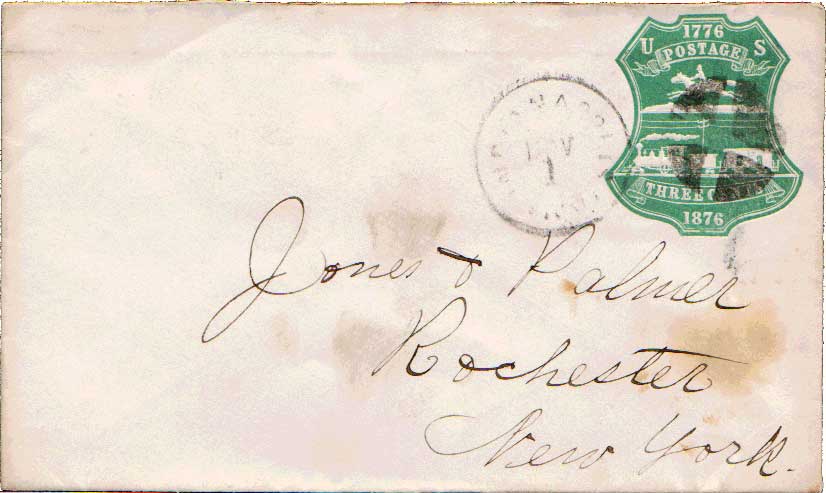 1776
U POSTAGE S
THREE
1876
NOV
1
Jones & Palmer
Rochester
New York.